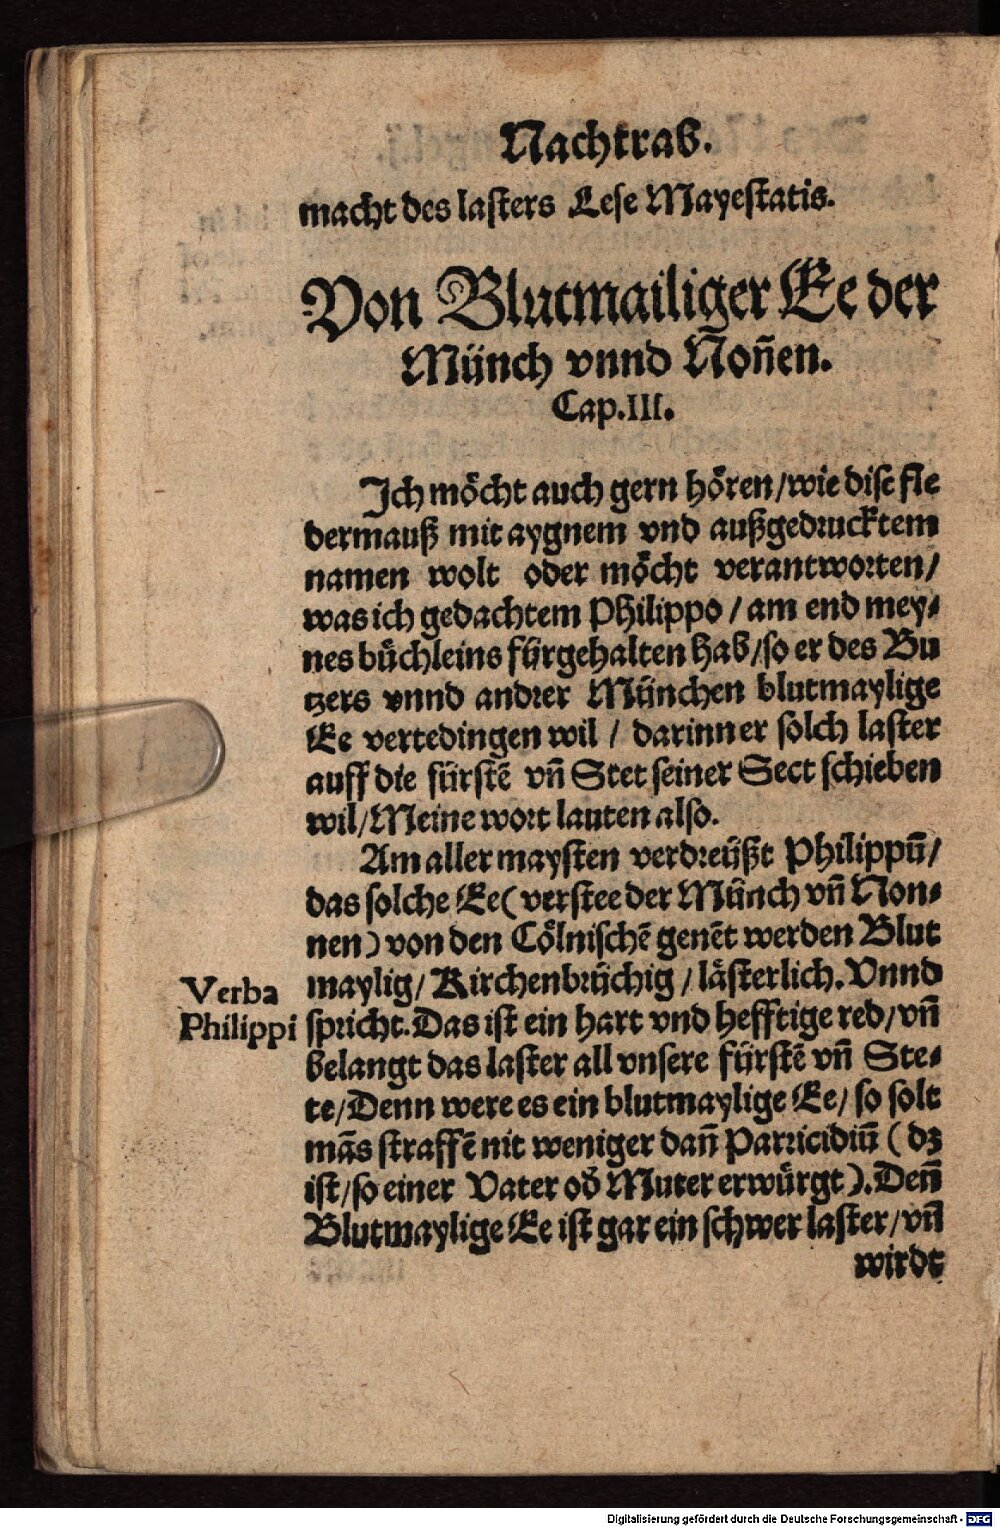 Nachtrab.
macht des lasters Lese Mayestatis.
Von Blutmailiger Ee der
Münch vnnd Non̄en.
Cap.III.
Ich möcht auch gern hören/wie dise fle
dermauß mit aygnem vnd außgedrucktem
namen wolt oder möcht verantworten/
was ich gedachtem Philippo / am end mey⸗
nes büchleins fürgehalten hab/so er des Bu
tzers vnnd andrer München blutmaylige
Ee vertedingen wil / darinn er solch laster
auff die fürstē vn̄ Stet seiner Sect schieben
wil/Meine wort lauten also.
Am aller maysten verdreüßt Philippū/
das solche Ee(verstee der Münch vn̄ Non⸗
nen) von den Cölnischē genēt werden Blut
maylig/ Kirchenbrüchig / lästerlich. Vnnd
Verba
Philippi
spricht. Das ist ein hart vnd hefftige red/vn̄
belangt das laster all vnsere fürstē vn̄ Ste⸗
te/Denn were es ein blutmaylige Ee/ so solt
mās straffē nit weniger dan̄ Parricidiū ( dz
ist/so einer Vater od̄ Muter erwürgt). Den̄
Blutmaylige Ee ist gar ein schwer laster/vn̄
wirdt
Digitalisierung gefördert durch die Deutsche Forschungsgemeinschaft - DFG